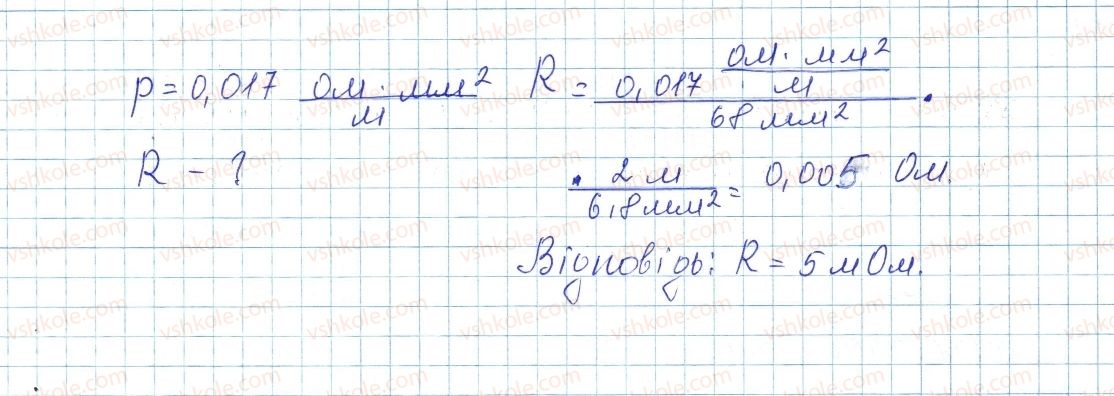 ρ = 0,017 Ом · мм² / м
R = 0,017 Ом · мм² / м / 68 мм² ·
R - ?
· 2 м / 6,8 мм² = 0,005 Ом.
Відповідь: R = 5 мОм.
vshkole.com